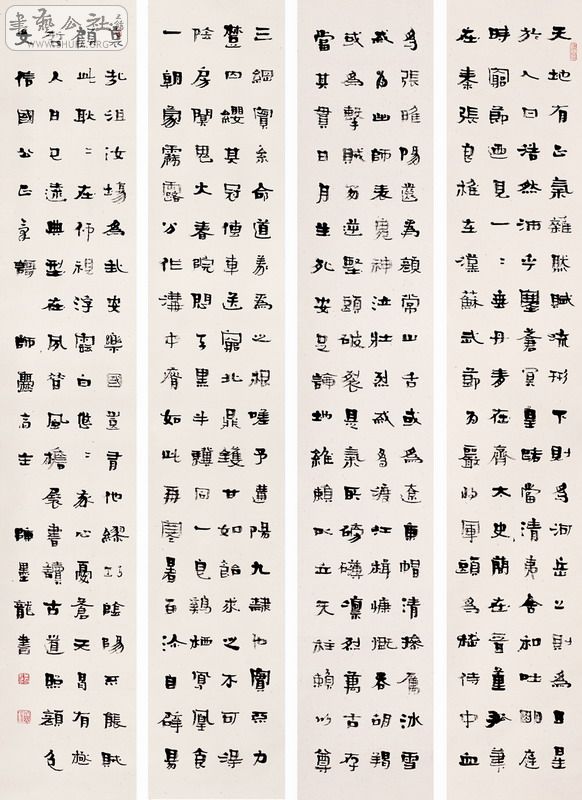 天地有正氣雜然賦流形下則為河岳上則為日星
於人曰浩然沛乎塞蒼冥皇路當清夷含和吐明庭
時窮節迺見一一垂丹青在齊太史簡在晉董狐筆
在秦張良椎在漢蘇武節為嚴將軍頭為嵇侍中血
為張睢陽齒為顏常山舌或為遼東帽清操厲冰雪
或為出師表鬼神泣壯烈或為渡江楫慷慨吞胡羯
或為擊賊笏逆豎頭破裂是氣所磅礴凜烈萬古存
當其貫日月生死安足論地維賴以立天柱賴以尊
三綱實系命道義為之根嗟予遘陽九隸也實不力
楚囚纓其冠傳車送窮北鼎鑊甘如飴求之不可得
陰房闃鬼火春院閟天黑牛驥同一皂雞棲鳳凰食
一朝蒙霧露分作溝中瘠如此再寒暑百沴自辟易
哀哉沮洳場為我安樂國豈有他繆巧陰陽不能賊
顧此耿耿在仰視浮雲白悠悠我心憂蒼天曷有極
哲人日已遠典型在夙昔風檐展書讀古道照顏色
文信國公正氣歌 師高士 陳墨龍書
書藝公社
WWW.SHUFA.ORG